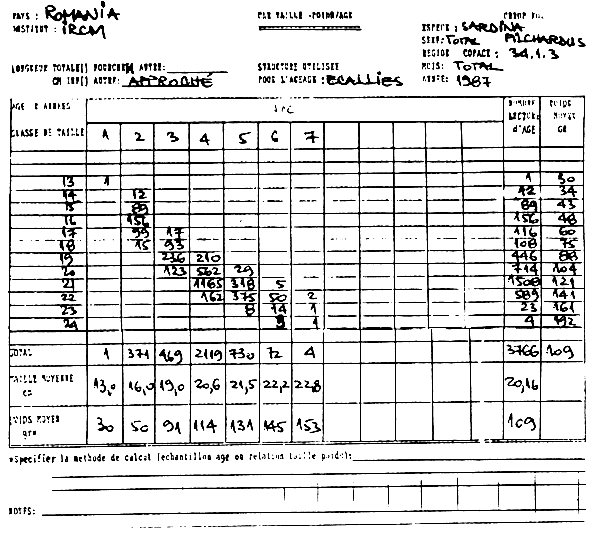 PAYS : ROMANIA
INSTITUT : IRCM
CLE TAILLE
ESPECE : SARDINA PILCHARDUS
SEXE: TOTAL
REGION COPACE : 34.1.3
LONGUEUR TOTALE[] FOURCHE[X] AUTRE:
STRUCTURE UTILISEE
MOIS: TOTAL
CM INF[] AUTRE: APPROCHÉ
POUR L'AGEAGE : ECALLIES
ANNEE: 1987
AGE D'ANNEES
AGE
NOMBRE LECTURE d'AGE
POIDS MOYEN GR
CLASSE DE TAILLE 1 2 3 4 5 6 7
13 1 1 30
14 12 12 34
15 89 89 43
16 156 156 48
17 99 17 116 60
18 15 93 108 75
19 236 210 446 88
20 123 562 29 714 104
21 1185 318 5 1508 121
22 162 375 50 2 589 141
23 8 14 1 23 161
24 3 1 4 192
TOTAL 1 371 469 2119 730 72 4 3766 109
TAILLE MOYENNE cm 13,0 16,0 19,0 20,6 21,5 22,2 22,8 20,16
POIDS MOYEN grs 30 50 91 114 131 145 153 109
*Specifier la methode de calcul (echantillon age ou relation taille poids):
NOTES: